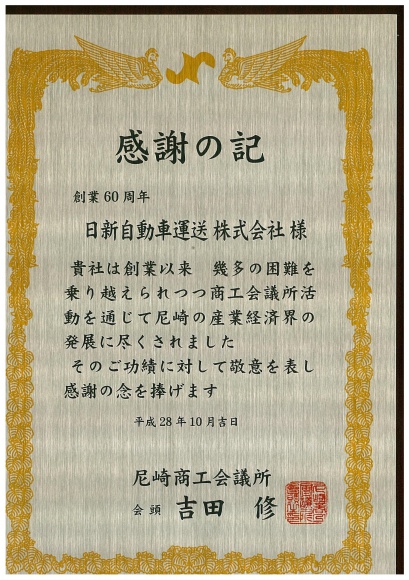 感謝の記
創業60周年
日新自動車運送株式会社様
貴社は創業以来　幾多の困難を
乗り越えられつつ商工会議所活
動を通じて尼崎の産業経済界の
発展に尽くされました
そのご功績に対して敬意を表し
感謝の念を捧げます
平成28年10月吉日
尼崎商工会議所
会頭　吉田　修